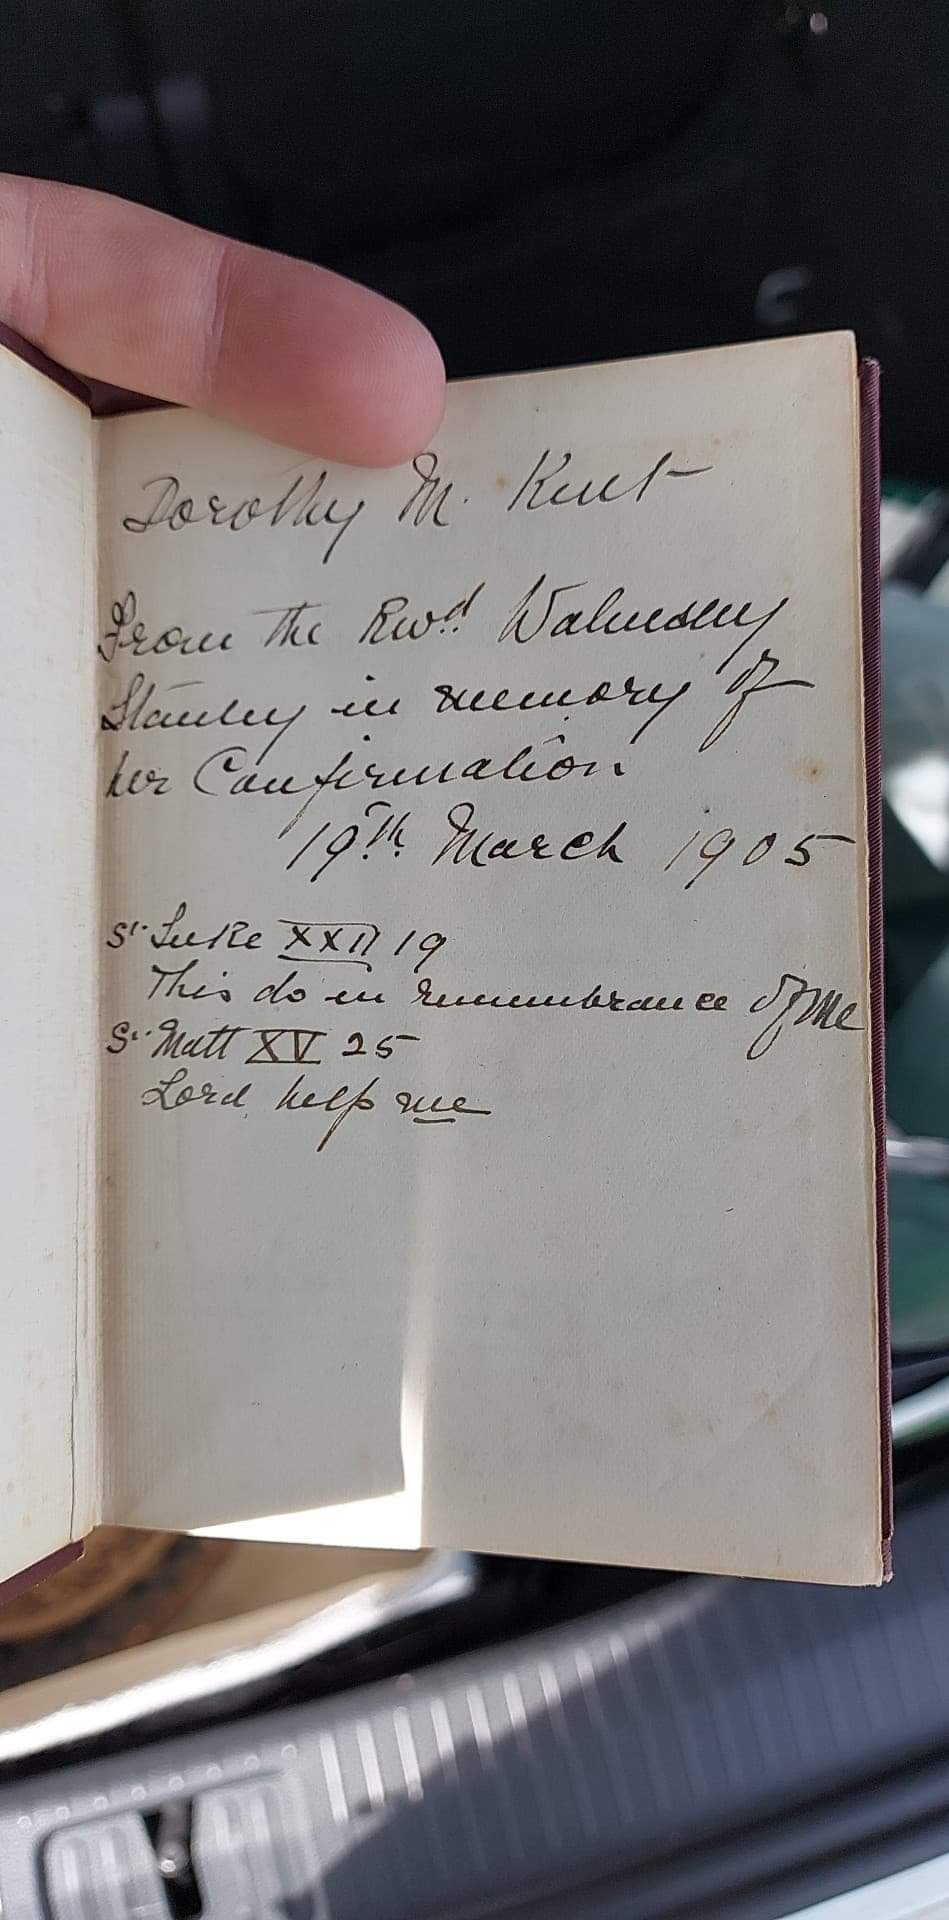 Dorothy M. Kent
From the Revd. Walmesley
Stanley in memory of
her Confirmation
19th. March 1905
St. Luke XXII 19
This do in remembrance of Me
St. Matt XV 25
Lord help me